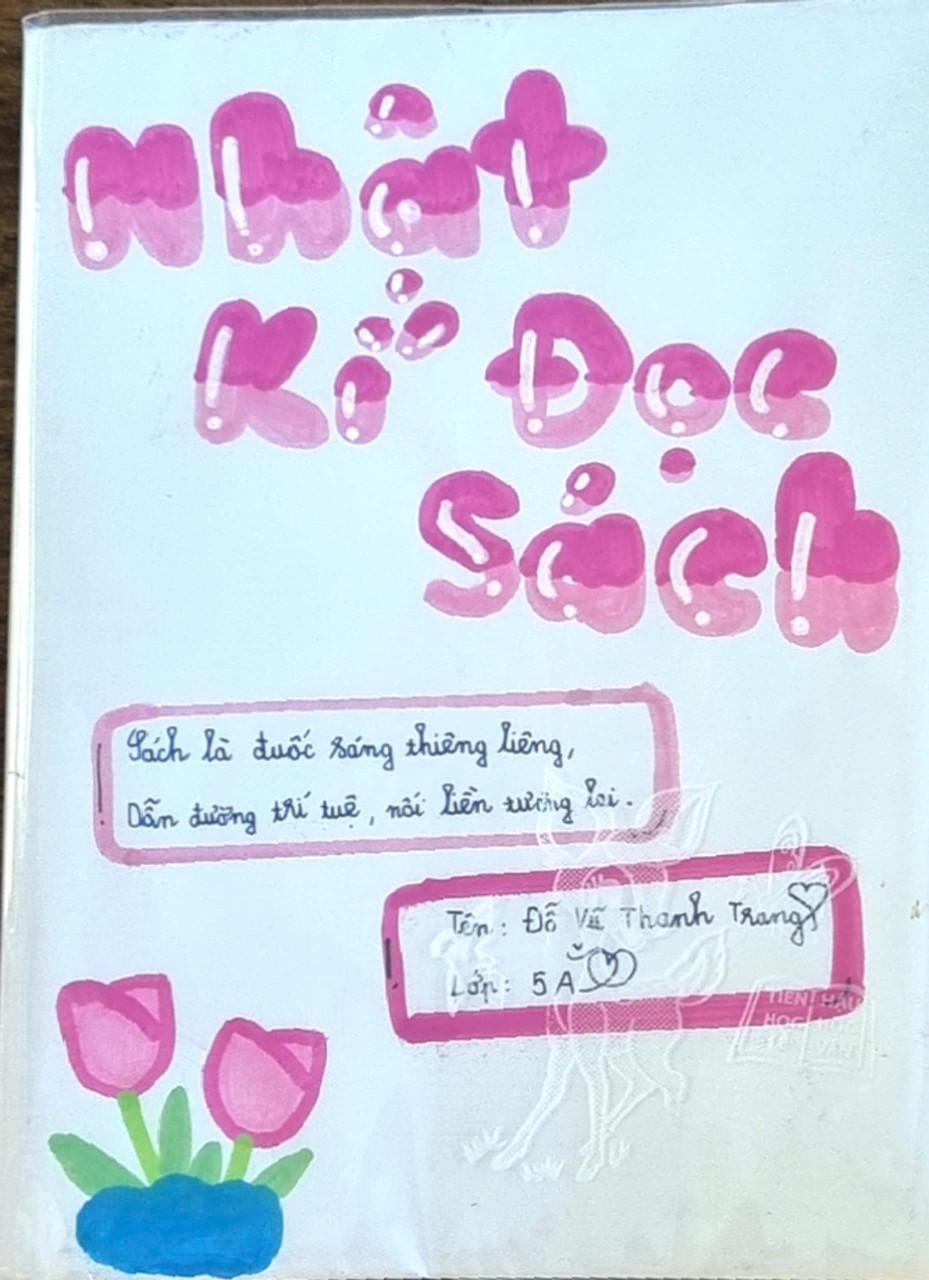 Nhật
Kí Đọc
Sách
Sách là đuốc sáng thiêng liêng,
Dẫn đường trí tuệ, nối liền tương lai.
Tên: Đỗ Vũ Thanh Trang
Lớp: 5A
TIÊN HỌC LỄ
HẬU HỌC VĂN